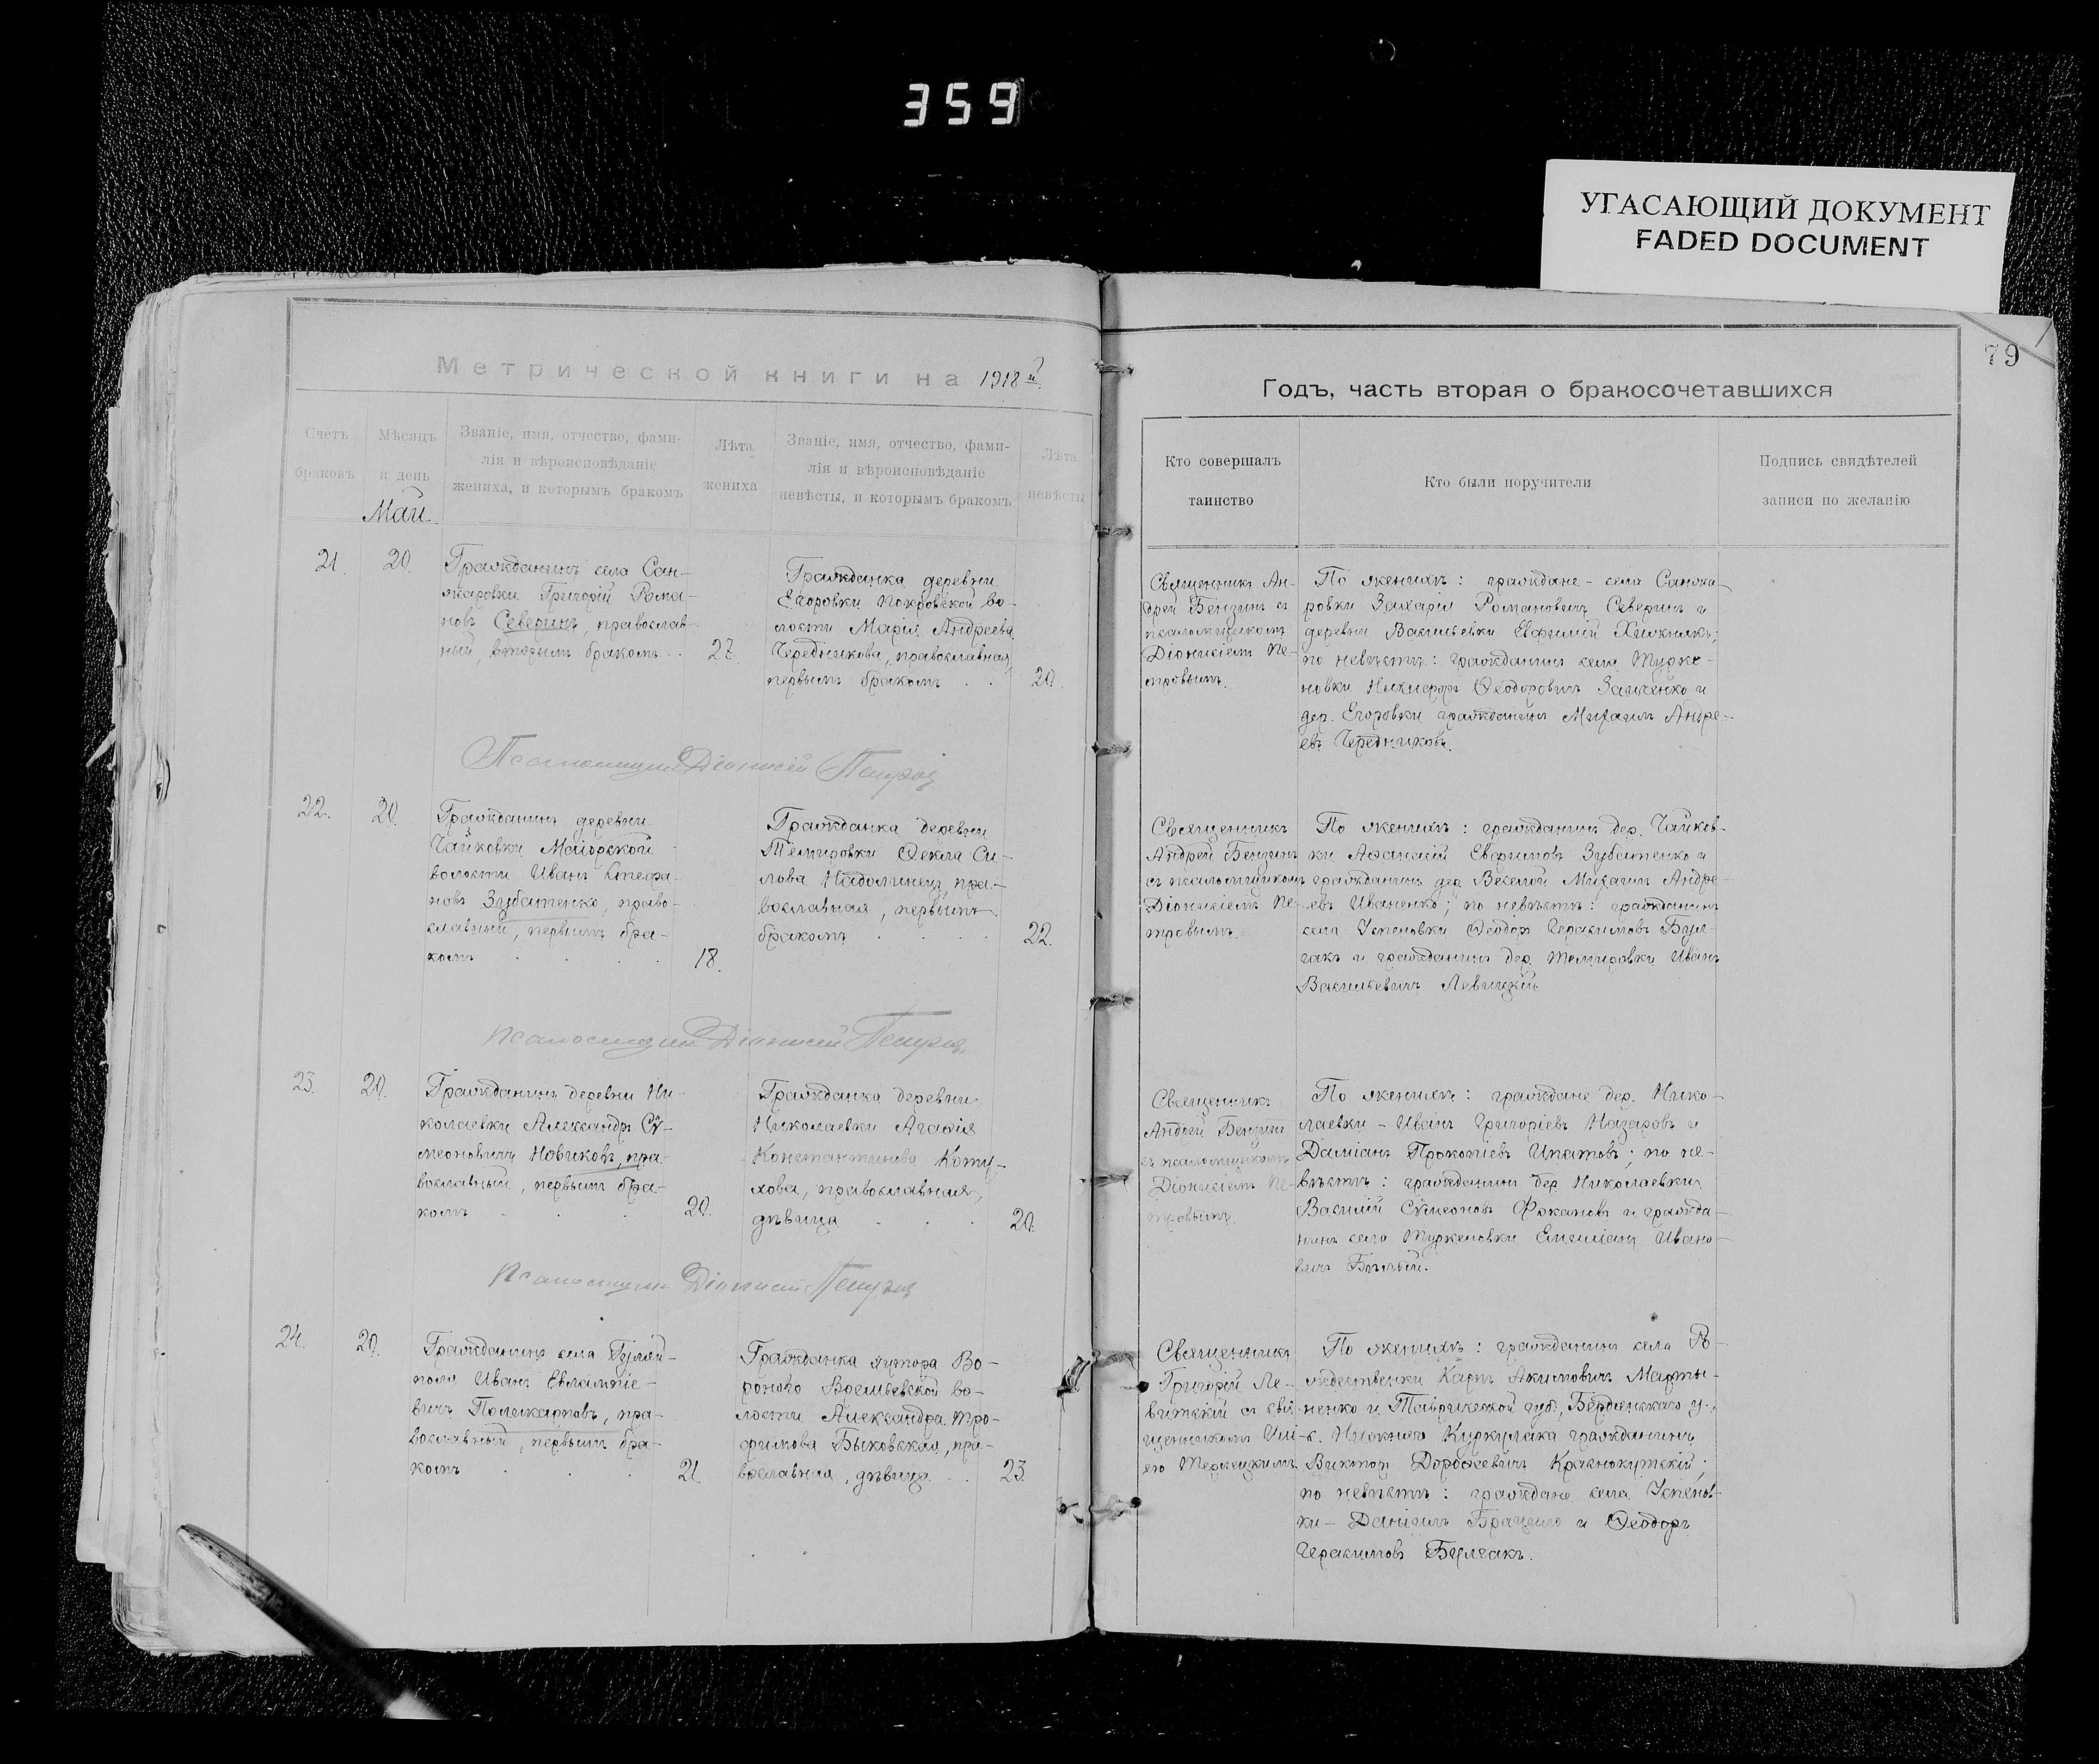 359
УГАСАЮЩИЙ ДОКУМЕНТ
FADED DOCUMENT
79
Метрической книги на 1918 й.
Годъ, часть вторая о бракосочетавшихся
Счетъ
браковъ
Мѣсяцъ
и день
Май.
Званіе, имя, отчество, фами-
лія и вѣроисповѣданіе
жениха, и которымъ бракомъ
Лѣта
жениха
Званіе, имя, отчество, фами-
лія и вѣроисповѣданіе
невѣсты, и которымъ бракомъ
Лѣта
невѣсты
Кто совершалъ
таинство
Кто были поручители
Подпись свидѣтелей
записи по желанію
21.
20.
Гражданинъ села Сан-
жаровки Григорій Рома-
новъ Северинъ, православ-
ный, вторымъ бракомъ . .
27.
Гражданка деревни
Егоровки Покровской во-
лости Марія Андреева
Чередникова, православная,
первымъ бракомъ . .
20.
Священникъ Ан-
дрей Бензинъ съ
псаломщикомъ
Діонисіемъ Пе-
тровымъ.
По женихѣ: граждане - села Санжа-
ровки Захарія Романовичъ Северинъ и
деревни Васильевки Евфимій Хижнякъ;
по невѣстѣ: гражданинъ села Турке-
новки Никифоръ Ѳеодоровичъ Заиченко и
дер. Егоровки гражданинъ Михаилъ Андре-
евъ Чередниковъ.
Псаломщикъ Діонисій Петровъ
22.
20.
Гражданинъ деревни
Чайковки Майорской
волости Иванъ Стефа-
новъ Зубатенко, право-
славный, первымъ бра-
комъ . . . .
18.
Гражданка деревни
Темировки Ѳекла Си-
лова Надолинецъ, пра-
вославная, первымъ
бракомъ . . . .
22.
Священникъ
Андрей Бензинъ
съ псаломщикомъ
Діонисіемъ Пе-
тровымъ.
По женихѣ: гражданинъ дер. Чайков-
ки Аѳанасій Евфимовъ Зубатенко и
гражданинъ дер. Веселой Михаилъ Андре-
евъ Иваненко; по невѣстѣ: гражданинъ
села Успеновки Ѳеодоръ Герасимовъ Бул-
гакъ и гражданинъ дер. Темировки Иванъ
Васильевичъ Левицкій.
Псаломщикъ Діонисій Петровъ
23.
20.
Гражданинъ деревни Ни-
колаевки Александръ Сѵ-
меоновичъ Новиковъ, пра-
вославный, первымъ бра-
комъ . . .
20.
Гражданка деревни
Николаевки Агаѳія
Константинова Кому-
хова, православная,
дѣвица . . .
20.
Священникъ
Андрей Бензинъ
съ псаломщикомъ
Діонисіемъ Пе-
тровымъ.
По женихѣ: граждане дер. Нико-
лаевки - Иванъ Григоріевъ Назаровъ и
Даміанъ Прокопіевъ Ипатовъ; по не-
вѣстѣ: гражданинъ дер. Николаевки
Василій Сѵмеоновъ Фокановъ и гражда-
нинъ села Туркеновки Емиліанъ Ивано-
вичъ Бѣлый.
Псаломщикъ Діонисій Петровъ
24.
20.
Гражданинъ села Гуляй-
поля Иванъ Евлампіе-
вичъ Поликарповъ, пра-
вославный, первымъ бра-
комъ . . .
21.
Гражданка хутора Во-
роного Васильевской во-
лости Александра Тро-
фимова Быковская, пра-
вославная, дѣвица . .
23.
Священникъ
Григорій Ле-
витскій съ свя-
щенникомъ Или-
ею Терлецкимъ.
По женихѣ: гражданинъ села Ро-
ждественки Карпъ Акимовичъ Марты-
ненко и Таврической губ., Бердянскаго у.,
с. Нижняго Куркулака гражданинъ
Викторъ Дорбоѳеевичъ Краснокутскій;
по невѣстѣ: граждане села Успенов-
ки - Даніилъ Брацило и Ѳеодоръ
Герасимовъ Булгакъ.